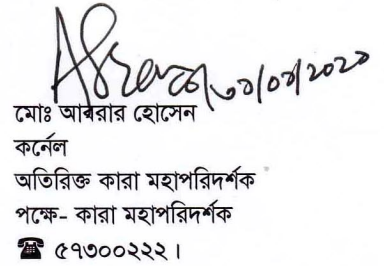 মোঃ আবরার হোসেন
কর্নেল
অতিরিক্ত কারা মহাপরিদর্শক
পক্ষে- কারা মহাপরিদর্শক
☎ ৫৭৩০০২২২।